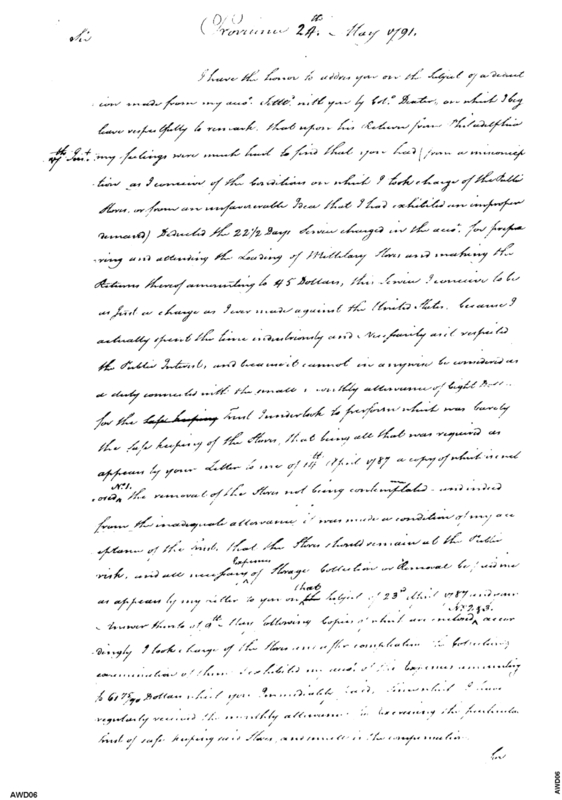 Providence 24th. May 1791.
Sir
I have the honor to address you on the Subject of a deduct
ion made from my acct. Settd. with you by Colo. Dexter, on which I beg
leave respectfully to remark. that upon his Return from Philadelphia
my feelings were much hurt to find that you had (from a misconcep
tion as I conceive of the Conditions on which I took charge of the Public
Stores, or from an unfavorable Idea that I had exhibited an improper
demand) Deducted the 22 1/2 Days Service charged in the acct. for prepa
ring and attending the Loading of Millitary Stores and making the
Returns thereof amounting to 45 Dollars, this Service I conceive to be
as Just a charge as I ever made against the United States, because I
actually spent the time industriously and Necessarily as it respected
the Public Interest, and because it cannot in anywise be considered as
a duty connected with the small monthly allowance of Eight
for the safe keeping Trust I undertook to perform which was barely
the safe keeping of the Stores, that being all that was required as
appears by your Letter to me of 14th April 1787 a copy of which is incl
osed No. 1. the removal of the Stores not being contemplated and indeed
from the inadequate allowance it was made a condition of my acc
eptance of the Trust, that the Stores should remain at the Public
risk, and all necessary Expenses of Storage Collection or Removal be
as appears by my letter to you on that Subject of 23d April 1787 and your
Answer thereto of 9th May following Copies of which are inclosed No. 2 & 3. accor
dingly I took charge of the Stores and after compleating the
examination of them I exhibited an acct. of the Expenses amounting
to 61 75/90 Dollars which you Immediately paid, Since which I have
regularly received the monthly allowance for exercising the particular
trust of safe keeping said Stores, and such is the compensation
for
AWD06
AWD06